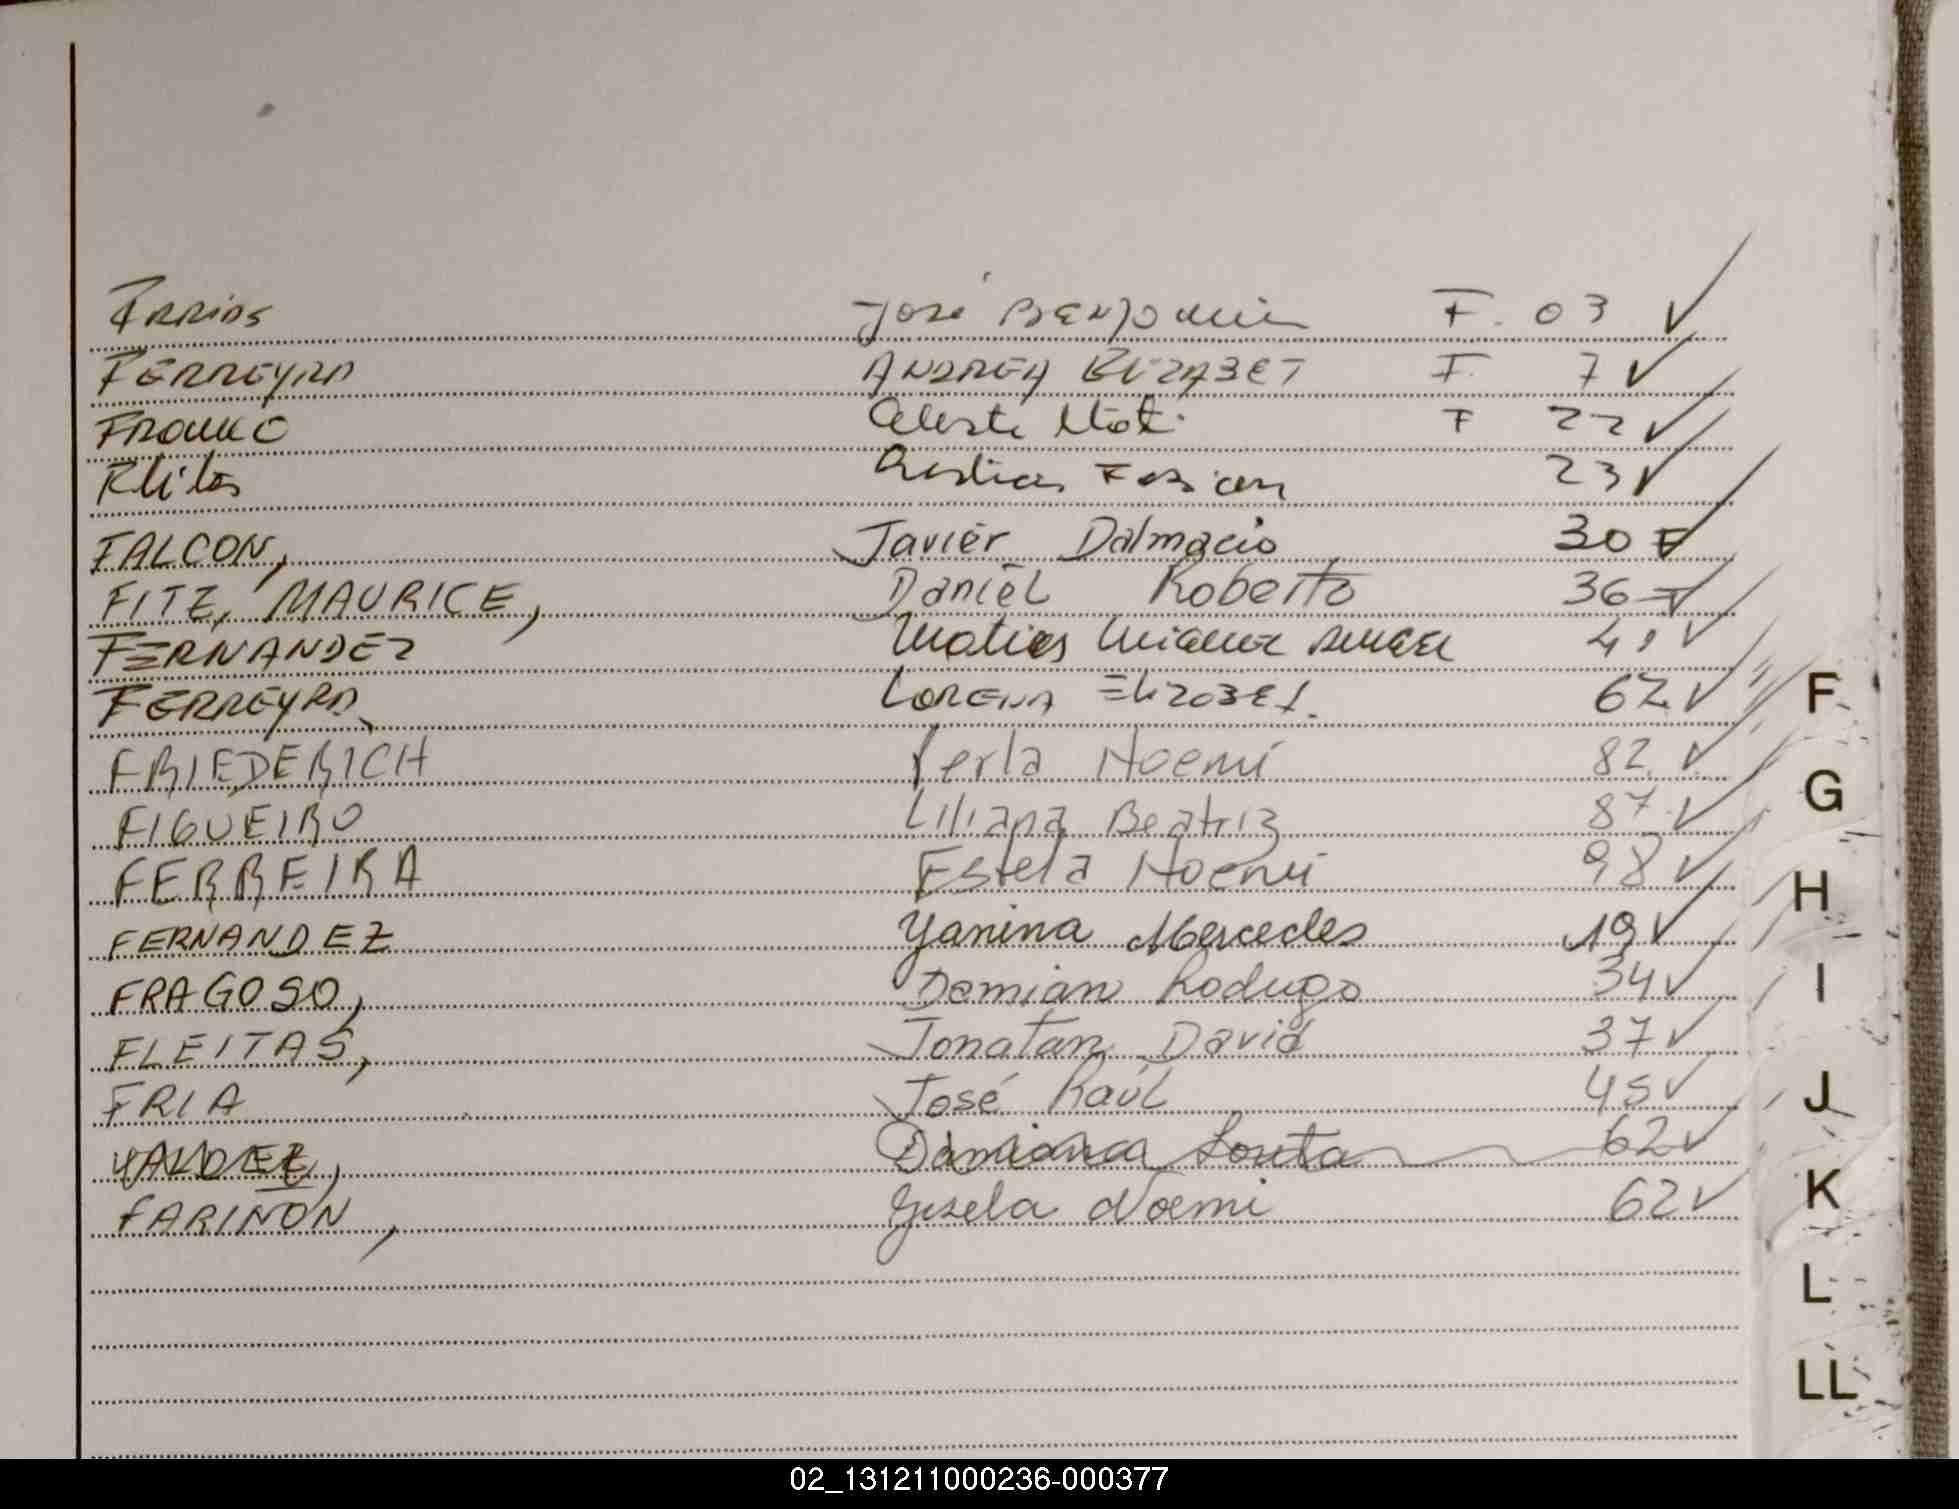 José Benjamin F. 03 ✓
FERREYRA ANDREA ELIZABET F. 7 ✓
FRANCO Celeste F 22 ✓
Fabian 23 ✓
FALCON, Javier Dalmacio 30 F ✓
FITZ, MAURICE, Daniel Roberto 36 F ✓
FERNANDEZ Matias Miguel ✓
FERREYRA, LORENA ELIZABET. 62 ✓
FRIEDERICH Perla Noemi 82 ✓
FIGUEIRO Liliana Beatriz 87 ✓
FERREIRA Estela Noemi 98 ✓
FERNANDEZ Yanina Mercedes 19 ✓
FRAGOSO, Damian Rodrigo 34 ✓
FLEITAS, Jonatan David 37 ✓
FRIA José Raúl 45 ✓
VALDEZ, Damiana 62 ✓
FARIÑON, Gisela Noemi 62 ✓
F
G
H
I
J
K
L
LL
02_131211000236-000377